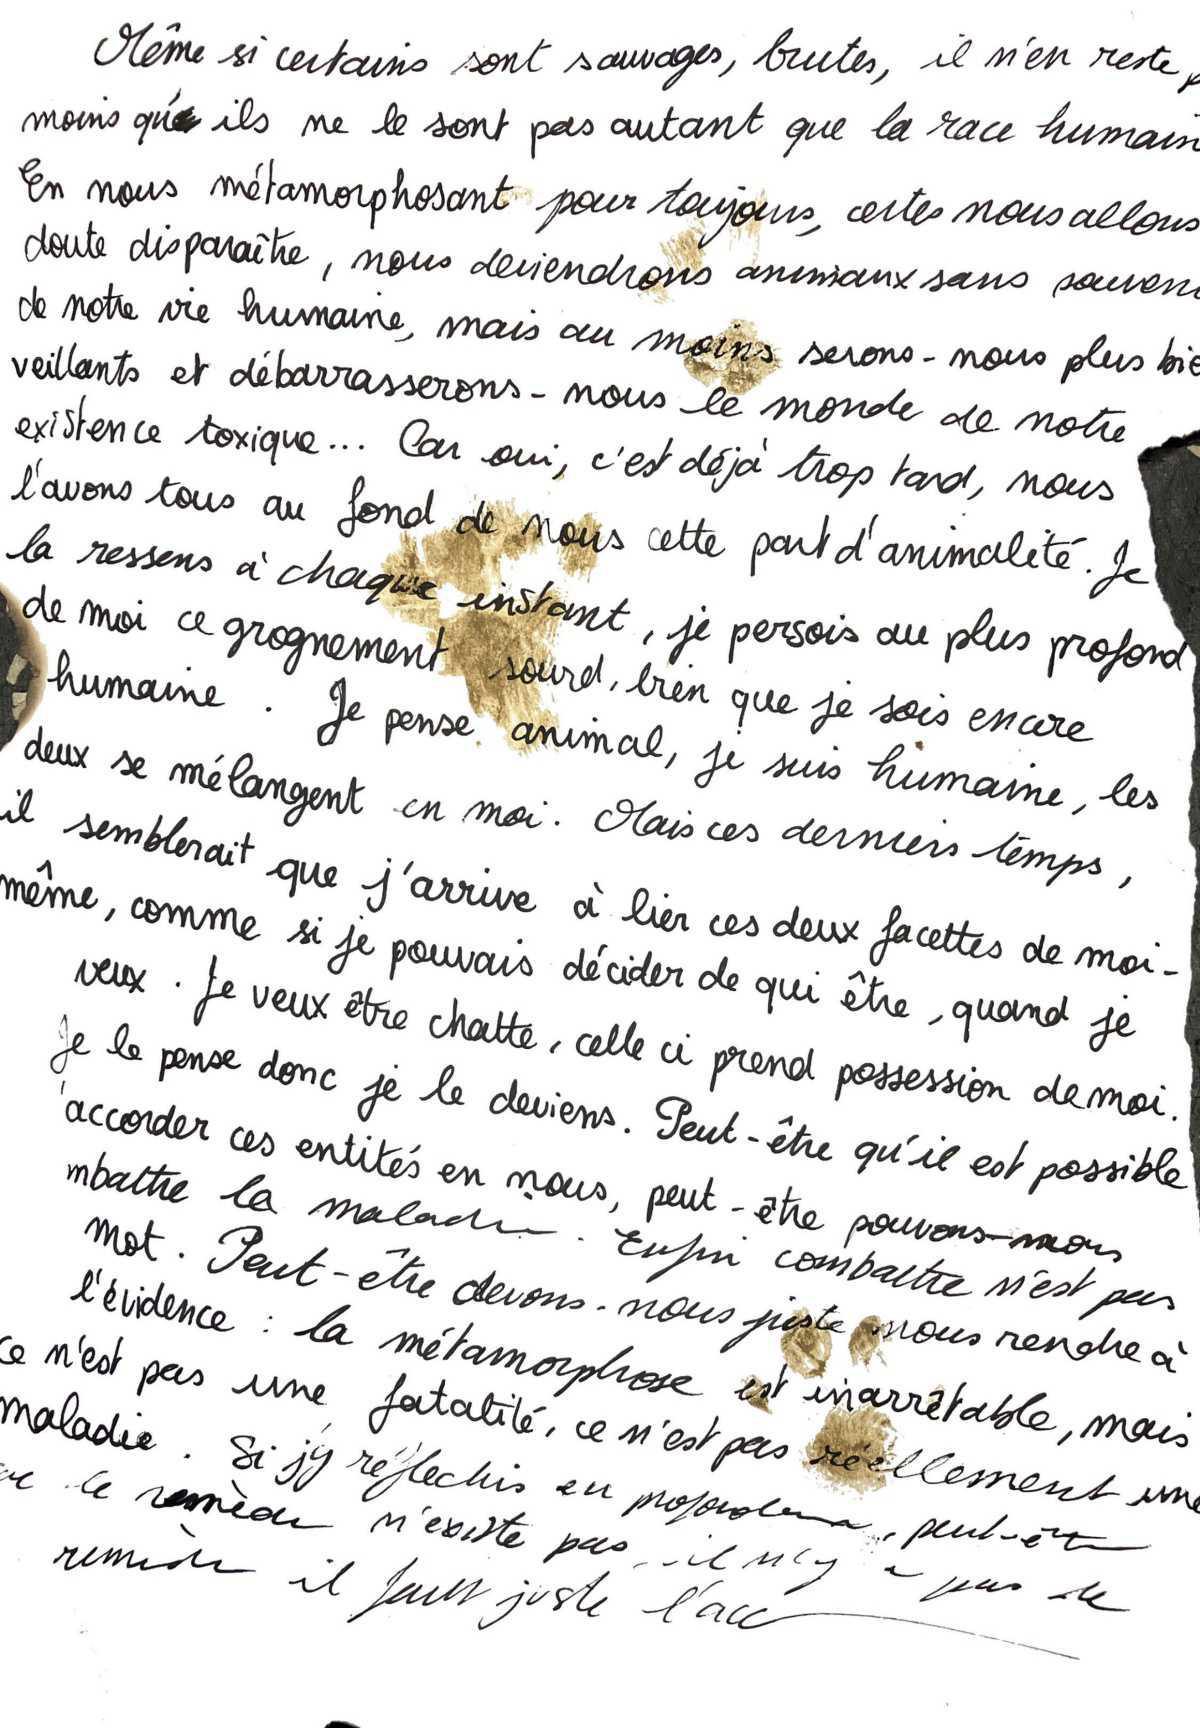 Même si certains sont sauvages, brutes, il n'en reste p
moins que ils ne le sont pas autant que la race humain
En nous métamorphosant pour toujours, certes nous allons
doute disparaître, nous deviendrons animaux sans souveni
de notre vie humaine, mais au moins serons-nous plus bie
veillants et débarrasserons-nous le monde de notre
existence toxique... Car oui, c'est déjà trop tard, nous
l'avons tous au fond de nous cette part d'animalité. Je
la ressens à chaque instant, je persois au plus profond
de moi ce grognement sourd, bien que je sois encore
humaine. Je pense animal, je suis humaine, les
deux se mélangent en moi. Mais ces derniers temps,
il semblerait que j'arrive à lier ces deux facettes de moi-
même, comme si je pouvais décider de qui être, quand je
veux. Je veux être chatte, celle ci prend possession de moi.
Je le pense donc je le deviens. Peut-être qu'il est possible
'accorder ces entités en nous, peut-être pouvons-nous
mbattre la maladie. Enfin combattre n'est pas
mot. Peut-être devons-nous juste nous rendre à
l'évidence : la métamorphose est inarrêtable, mais
ce n'est pas une fatalité, ce n'est pas réellement une
maladie. Si j'y réflechis en profondeur, peut-êt
e le remède n'existe pas, il n'y a pas de
remède il faut juste l'acc